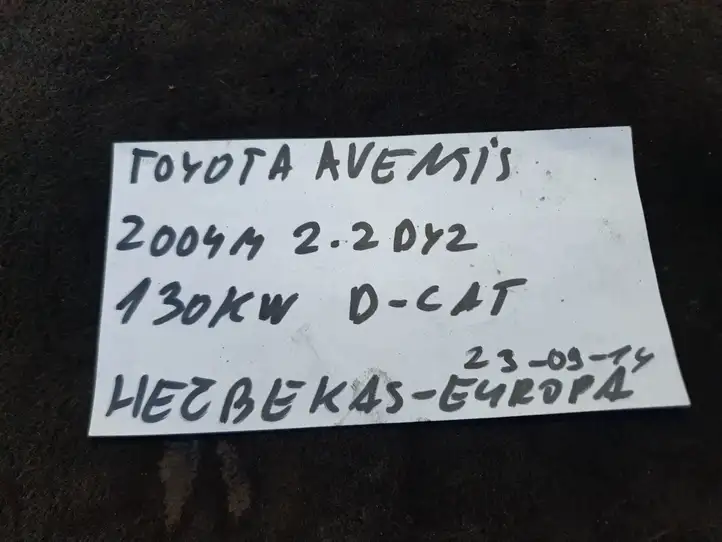 TOYOTA AVENSIS
2004M 2.2DYZ
130KW D-CAT
23-09-14
HEČBEKAS-EUROPA